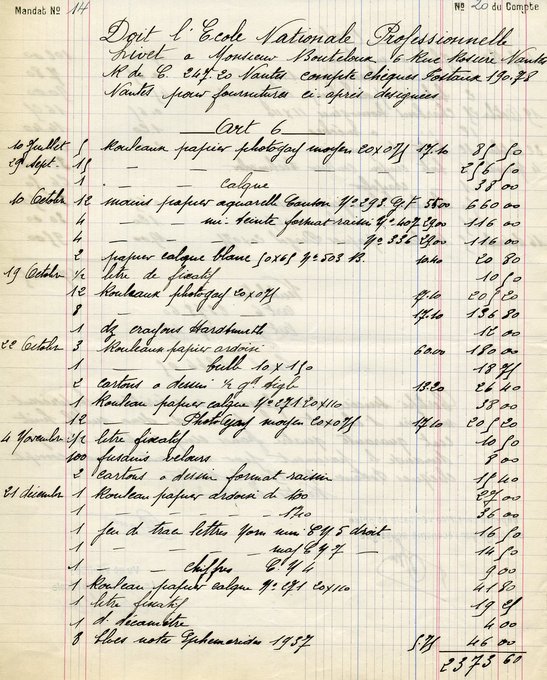 Mandat No 14 No 20 du Compte
Doit l'Ecole Nationale Professionnelle
Livet a Monsieur Bouteloux, 6 Rue Rosière Nantes
R du C. 247.20 Nantes compte chèques Postaux 190.78
Nantes pour fournitures ci-après designées
Art 6
10 Juillet 5 Rouleaux papier photogay moyen 20x075 17.10 85 50
29 Sept. 15 - - - - 256 50
1 - - calque 38 00
10 Octobre 12 mains papier aquarelle Canson No 293 G.F 55 00 660 00
4 - - mi-teinte format raisin No 407 29 00 116 00
4 - - - No 336 29 00 116 00
2 papier calque blanc 50x65 No 503 B 10.40 20 80
19 Octobre 1/2 litre de fixatif 10 50
12 Rouleaux photogay 20x075 17.10 205 20
8 - - - 17.10 136 80
1 dz crayons Hardtmuth 12 00
22 Octobre 3 Rouleaux papier ardoisé 60.00 180 00
1 - bulle 10x150 18 75
2 cartons a dessin 1/2 gd Aigle 13.20 26 40
1 Rouleau papier calque No 271 20x110 38 00
12 - Photogay moyen 20x075 17.10 205 20
4 Novembre 1/2 litre fixatif 10 50
100 fusains velours 8 00
2 cartons a dessin format raisin 15 40
21 décembre 1 Rouleau papier ardoisé de 100 27 00
1 - - - 140 36 00
1 jeu de trace lettres min C Y 5 droit 16 50
1 - - - maj C Y 7 - 14 50
1 - - chiffres C. Y 4 9 00
1 Rouleau papier calque No 271 20x110 41 80
1 litre fixatif 19 25
1 d. décamètre 4 00
8 blocs notes Ephemerides 1937 5.75 46 00
2373 60